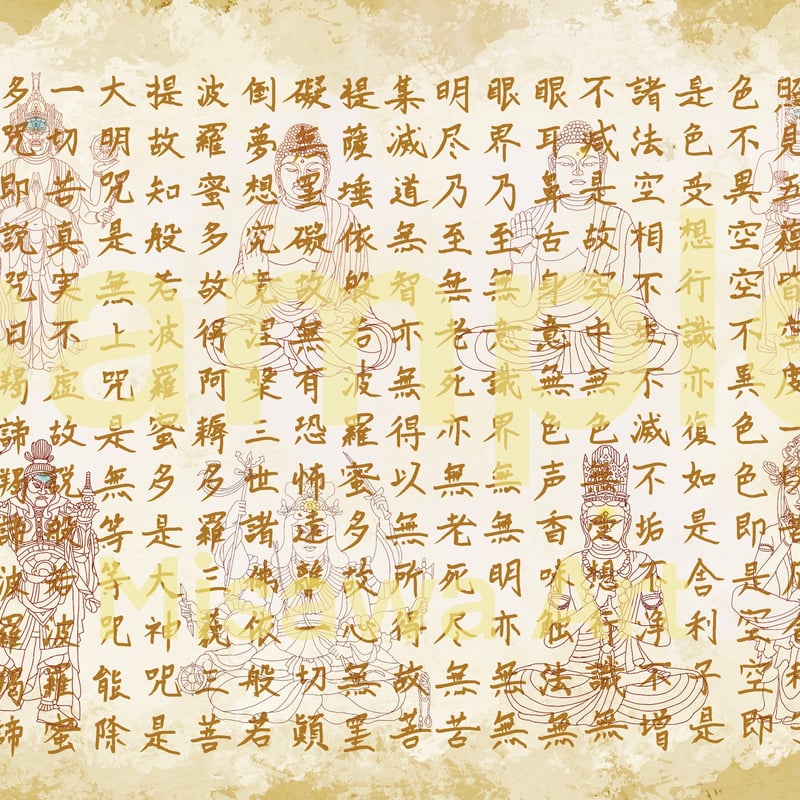 照見五蘊皆空度一切苦厄舎利子
色不異空空不異色色即是空空即
是色受想行識亦復如是舎利子是
諸法空相不生不滅不垢不浄不増
不減是故空中無色無受想行識無
眼耳鼻舌身意無色声香味触法無
眼界乃至無意識界無無明亦無無
明尽乃至無老死亦無老死尽無苦
集滅道無智亦無得以無所得故菩
提薩埵依般若波羅蜜多故心無罣
礙無罣礙故無有恐怖遠離一切顛
倒夢想究竟涅槃三世諸佛依般若
波羅蜜多故得阿耨多羅三藐三菩
提故知般若波羅蜜多是大神呪是
大明呪是無上呪是無等等呪能除
一切苦真実不虚故説般若波羅蜜
多呪即説呪曰羯諦羯諦波羅羯諦
ample
Misawa Art